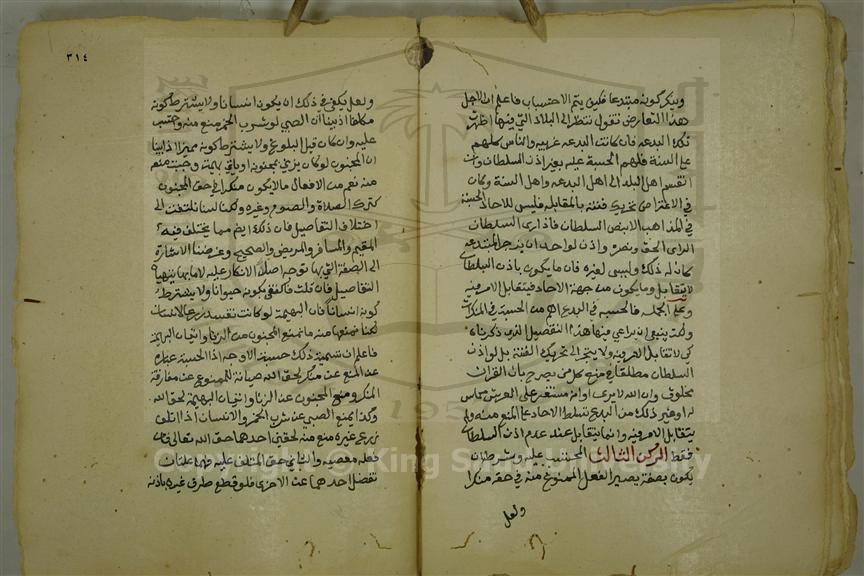 وينكر كونه مبتدعا فكيف يتم الاحتساب فاعلم ان لاجل
هذا التعارض نقول ننظر الى البلاد التي فيها اظهرت
تلك البدعة فان كانت البدعة غريبة والناس كلهم
على السنة فلهم الحسبة عليه بغير اذن السلطان وان
انقسم اهل البلد الى اهل البدعه واهل السنة وكان
في الاعتراض تحريك فتنة بالمقابله فليس للاحاد الحسبة
في المذاهب الا بنصب السلطان فاذا راى السلطان
الراى الحق ونصره واذن لواحد ان يزجر المبتدعه
كان له ذلك وليس لغيره فان ما يكون باذن السلطان
لا يتقابل وما يكون من جهة الاحاد فيتقابل الامر فيه
وعلى الجمله فالحسبة في البدع اهم من الحسبة في المنكرات
ولكن ينبغي ان يراعى فيها هذا التفصيل الذى ذكرناه
كى لا تقابل الامر فيه ولا ينجر الى تحريك الفتنة بل لو اذن
السلطان مطلقا في منع كل من يصرح بان القران
مخلوق وان الله لا يرى او انه مستقر على العرش مماس
له او غير ذلك من البدع تسلط الاحاد على المنع منه ولم
يتقابل الامر فيه وانما يتقابل عند عدم اذن السلطان
فقط الركن الثالث المحتسب عليه وشرطه ان
يكون بصفة يصير الفعل الممنوع منه في حقه منكرا
ولعل
٣١٤
ولعل يكفي في ذلك ان يكون انسانا ولا يشترط كونه
مكلفا اذ بينا ان الصبي لو شرب الخمر منع منه واحتسب
عليه وان كان قبل البلوغ ولا يشترط كونه مميزا اذ بينا
ان المجنون لو كان يزني بمجنونه او ياتي بهيمة وجبت منعه
منه نعم من الافعال ما لا يكون منكرا في حق المجنون
كترك الصلاة والصوم وغيره ولكنا لسنا نلتفت الى
اختلاف التفاصيل فان ذلك ايضا مما يختلف فيه
المقيم والمسافر والمريض والصحيح وغرضنا الاشارة
الى الصفة التي بها توجه اصل الانكار عليه لا ما بها يتهيا
التفاصيل فان قلت فاكتفى بكونه حيوانا ولا يشترط
كونه انسانا فان البهيمة لو كانت تفسد زرع الانسان
لكنا نمنعها منه كما نمنع المجنون من الزنا واتيان البهايم
فاعلم ان تسمية ذلك حسبة لا وجه اذ الحسبة عبارة
عن المنع عن منكر لحق الله صيانة للممنوع عن مفارقة
المنكر ومنع المجنون عن الزنا واتيان البهيمة لحق الله
وكذا يمنع الصبي عن شرب الخمر والانسان اذا اتلف
زرع غيره منع منه لحقين احدهما حق الله تعالى فان
فعله معصيه والثاني حق المتلف عليه فهما علتان
تفصل احدهما عن الاخرى فلو قطع طرف غيره باذنه